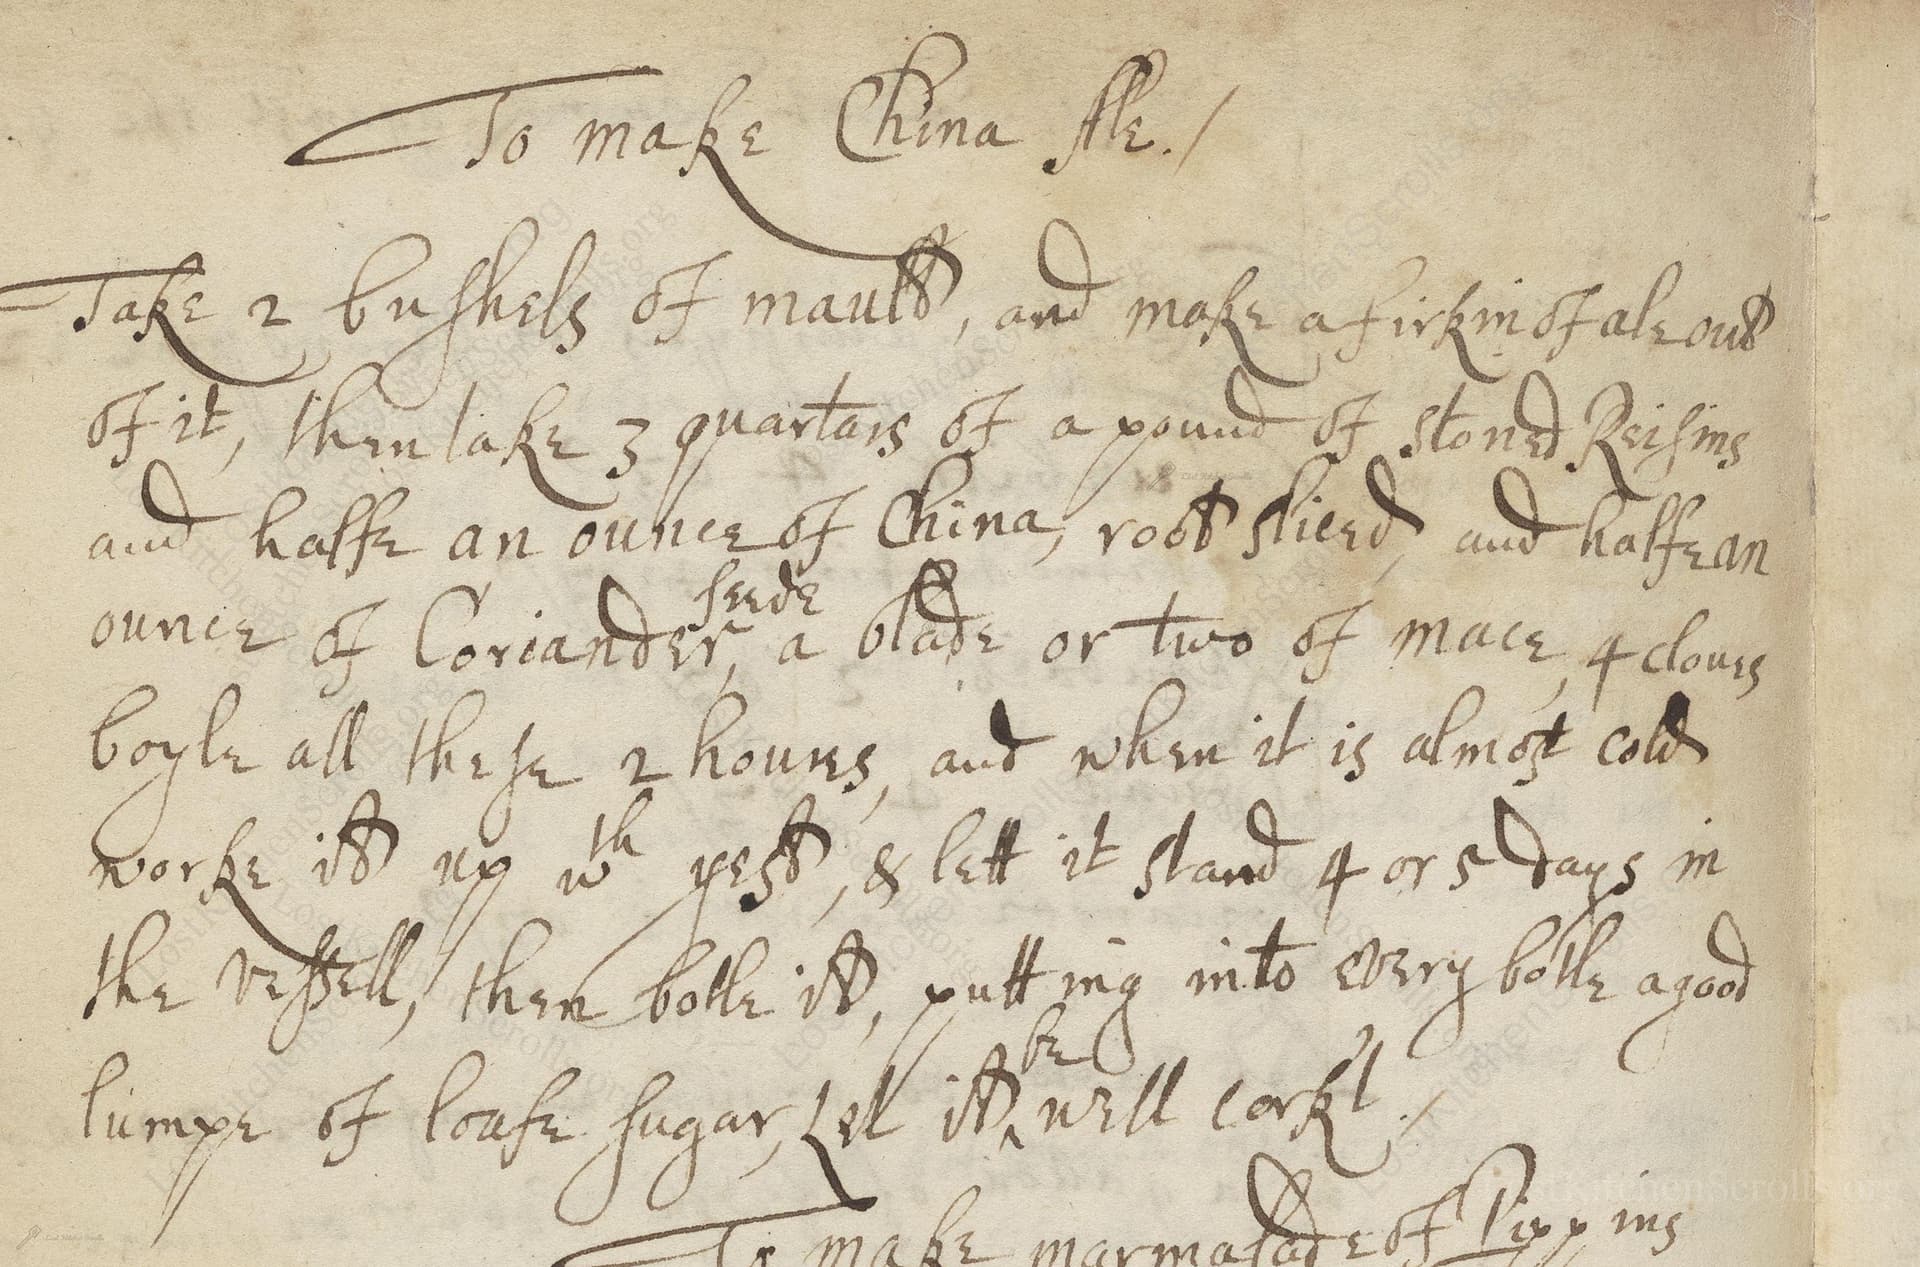 To make China Ale./
Take 2 bushels of mault, and make a firkin of ale out
of it, then take 3 quartars of a pound of stoned Reisins
and halfe an ounce of China, root sliced, and halfe an
ounce of Coriander seede, a blade or two of mace, 4 cloues
boyle all these 2 houres, and when it is almost cold
worke it up wth yest, & lett it stand 4 or 5 days in
the vessell, then botle it, putting into every botle a good
lumpe of loafe sugar, Let it be well corkt./
To make marmalade of Pippins